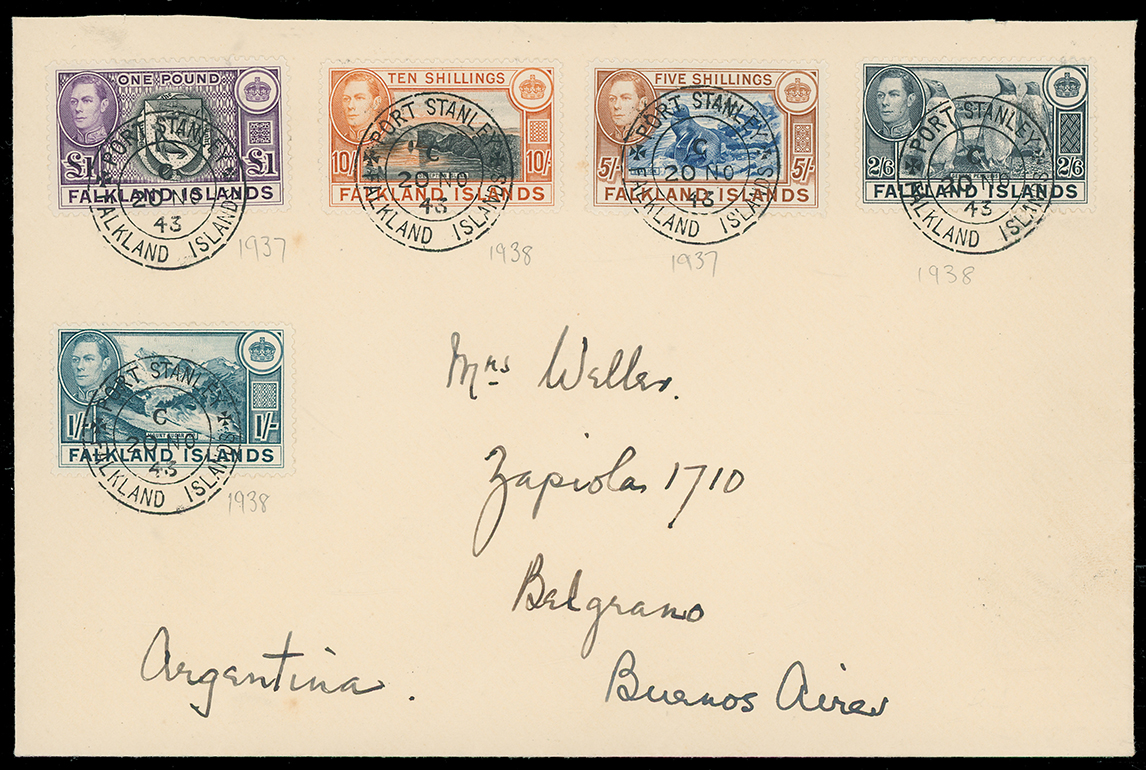 ONE POUND
£1 £1
FALKLAND ISLANDS
PORT STANLEY
C
20 NO
43
FALKLAND ISLANDS
1937
TEN SHILLINGS
10/- 10/-
FALKLAND ISLANDS
PORT STANLEY
C
20 NO
43
FALKLAND ISLANDS
1938
FIVE SHILLINGS
5/- 5/-
FALKLAND ISLANDS
PORT STANLEY
C
20 NO
43
FALKLAND ISLANDS
1937
2/6 2/6
FALKLAND ISLANDS
PORT STANLEY
C
20 NO
43
FALKLAND ISLANDS
1938
1/- 1/-
FALKLAND ISLANDS
PORT STANLEY
C
20 NO
43
FALKLAND ISLANDS
1938
Mrs Weller.
Zapiola 1710
Belgrano
Buenos Aires
Argentina.